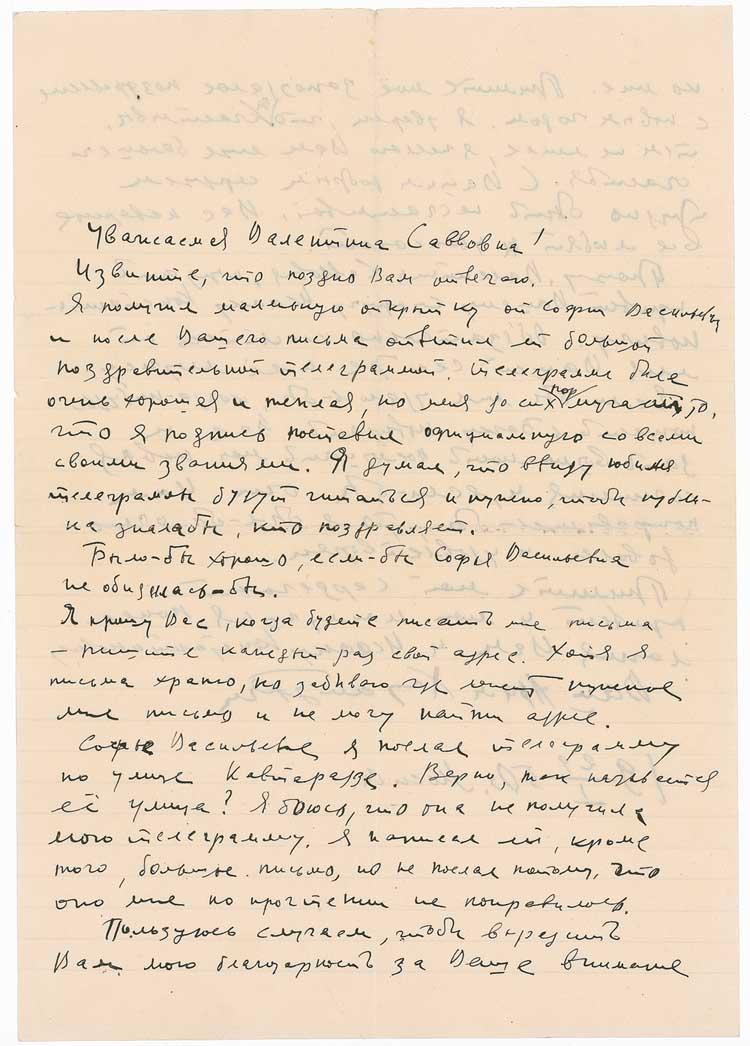 Уважаемая Валентина Саввовна!
Извините, что поздно Вам отвечаю.
Я получил маленькую открытку от Софии Васильевны
и после Вашего письма ответил ей большой
поздравительной телеграммой. Телеграмма была
очень хорошая и теплая, но меня до сих пор мучает то,
что я подпись поставил официальную со всеми
своими званиями. Я думал, что ввиду юбилея
телеграммы будут читаться и нужно, чтобы публи-
ка знала бы, кто поздравляет.
Было-бы хорошо, если-бы Софья Васильевна
не обиделась-бы.
Я прошу Вас, когда будете писать мне письма
– пишите каждый раз свой адрес. Хотя я
письма храню, но забываю где лежит нужное
мне письмо и не могу найти адрес.
Софье Васильевне я послал телеграмму
по улице Кавтарадзе. Верно, так называется
её улица? Я боюсь, что она не получила
мою телеграмму. Я написал ей, кроме
того, большое письмо, но не послал потому, что
оно мне по прочтении не понравилось.
Пользуюсь случаем, чтобы выразить
Вам мою благодарность за Ваше внимание